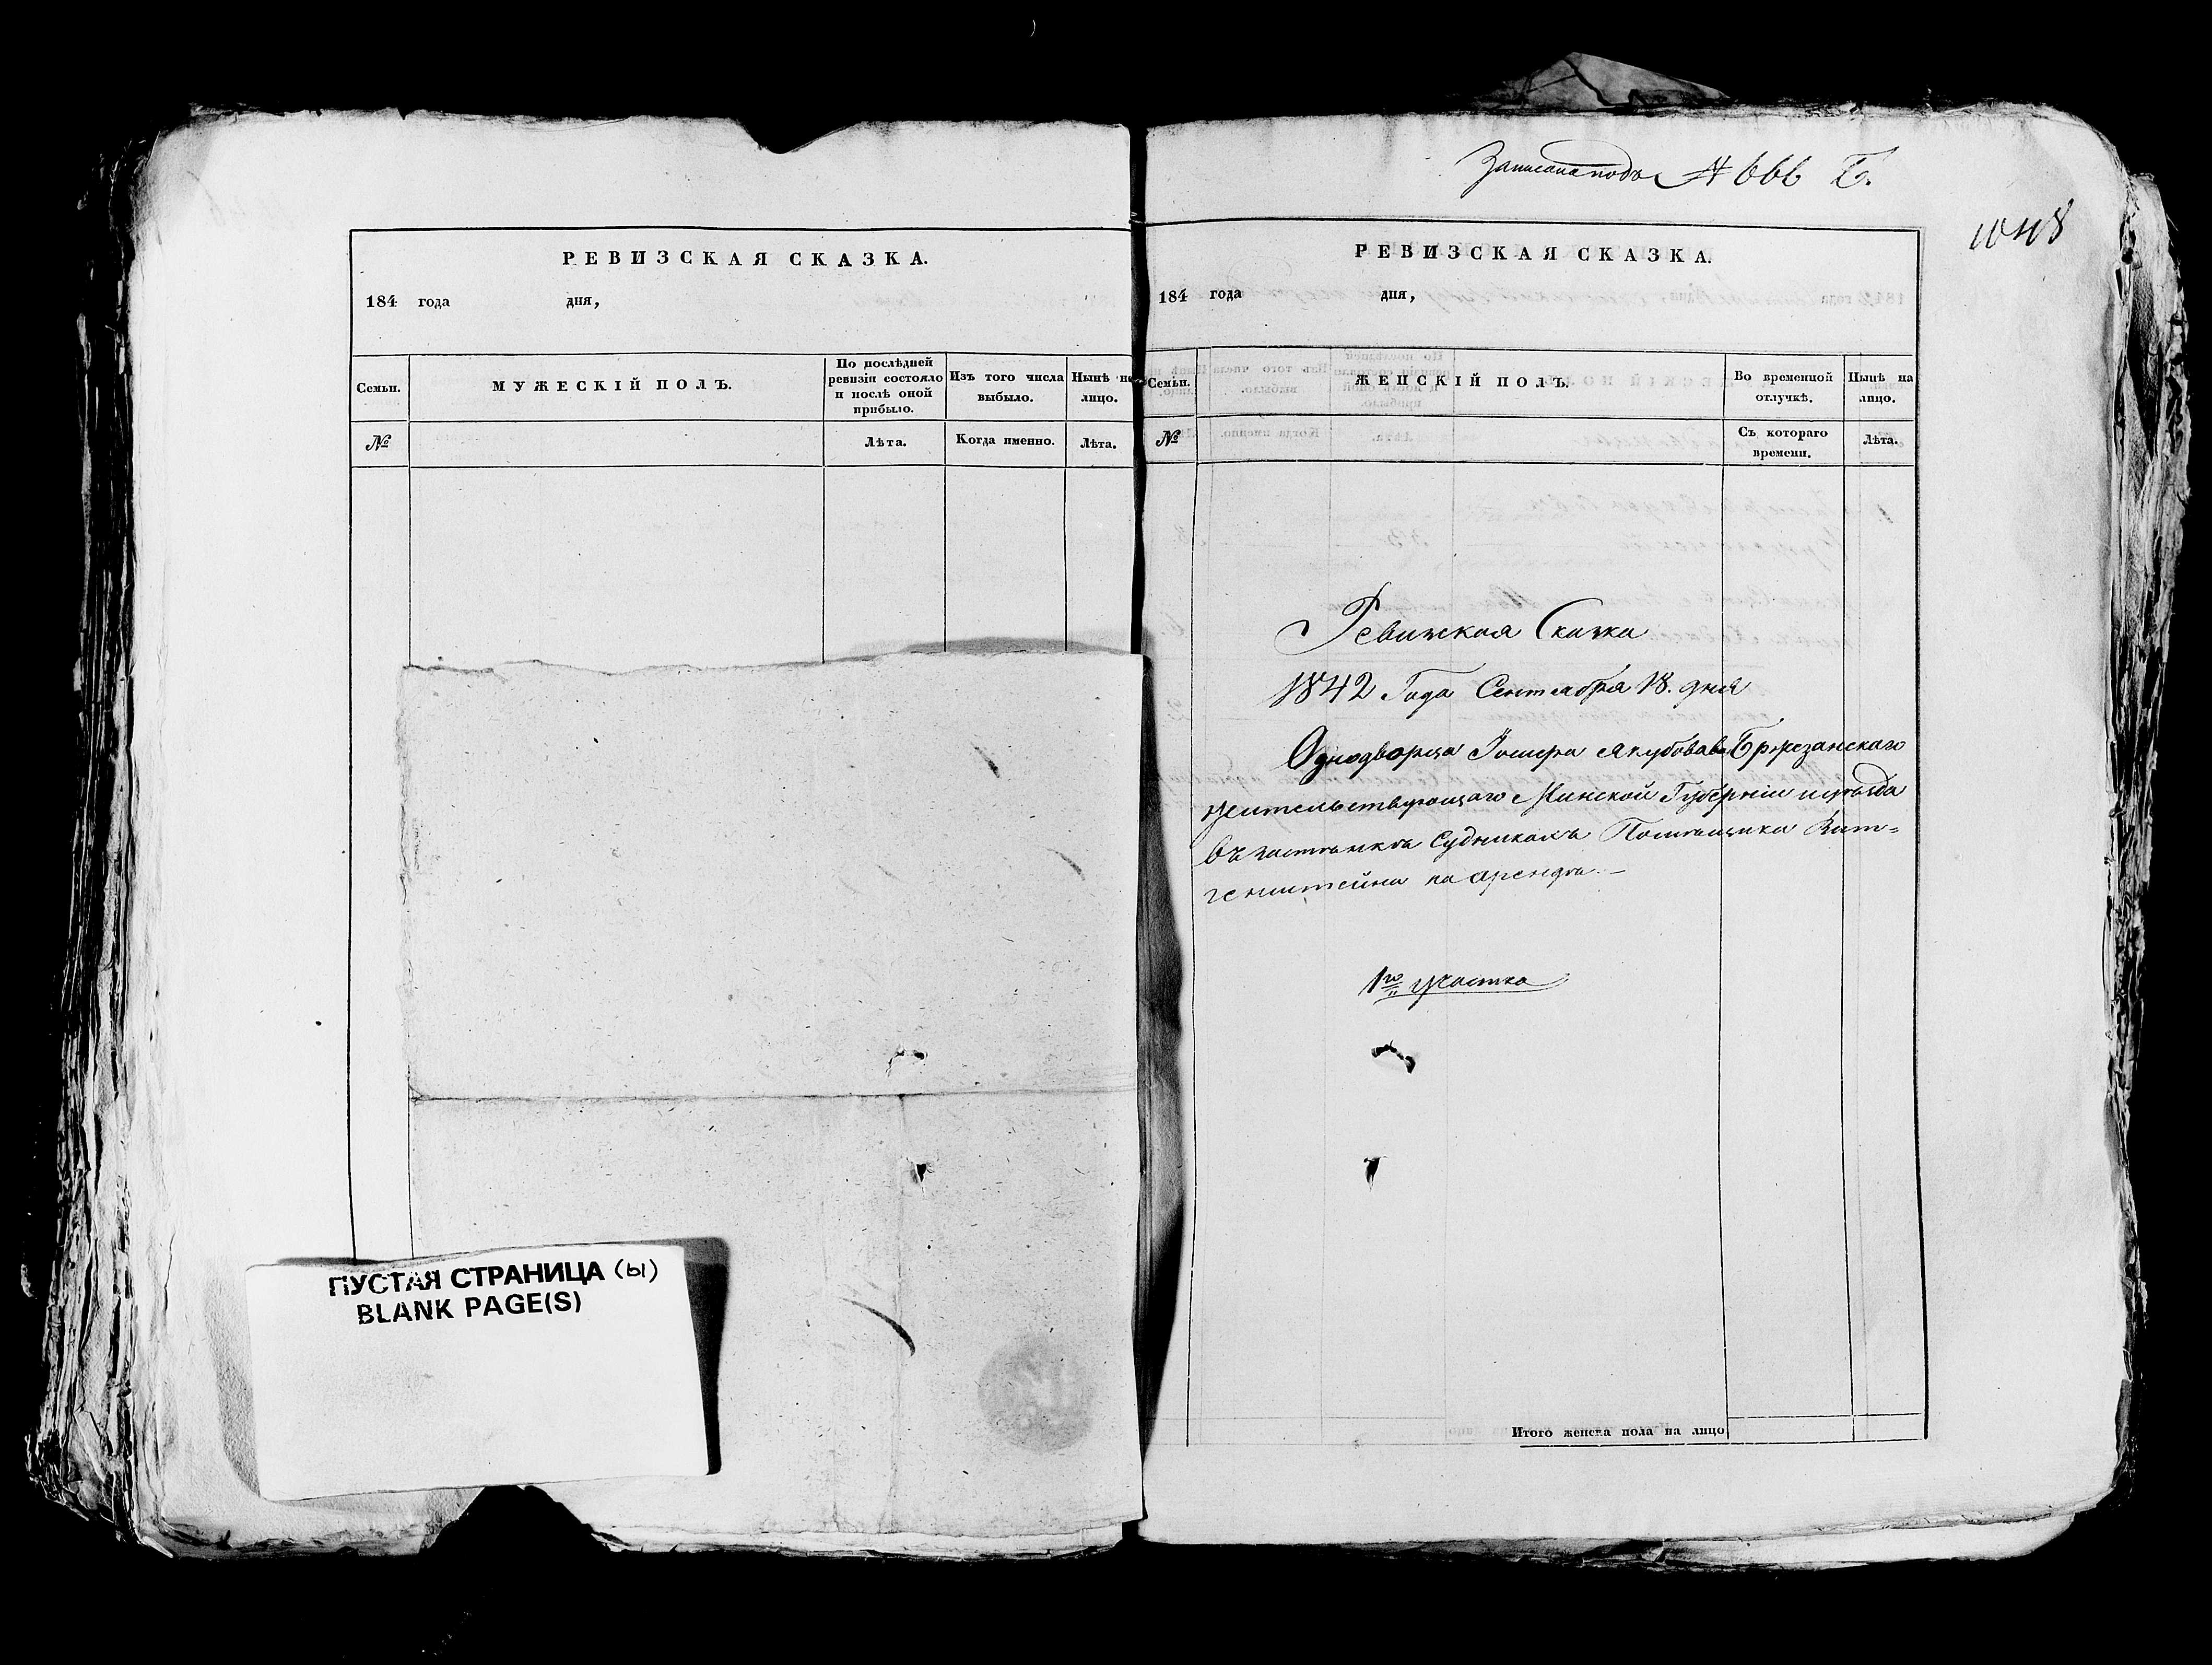 РЕВИЗСКАЯ СКАЗКА.
184 года дня,
Семьи.
МУЖЕСКІЙ ПОЛЪ.
По послѣдней ревизіи состояло и послѣ оной прибыло.
Изъ того числа выбыло.
Нынѣ на лицо.
№
Лѣта.
Когда именно.
Лѣта.
ПУСТАЯ СТРАНИЦА (Ы)
BLANK PAGE(S)
Записана подъ № 666 Б.
1048
РЕВИЗСКАЯ СКАЗКА.
184 года дня,
Семьи.
ЖЕНСКІЙ ПОЛЪ.
Во временной отлучкѣ.
Нынѣ на лицо.
№
Съ котораго времени.
Лѣта.
Ревизская Сказка
1842 Года Сентября 18. дня
Однодворца Іосифа Якубова Бржезанскаго
жительствующаго Минской Губерніи и уѣзда
въ застѣнкѣ Судникахъ Помѣщика Вит=
генштейна на арендѣ.—
1го участка
Итого женска пола на лицо